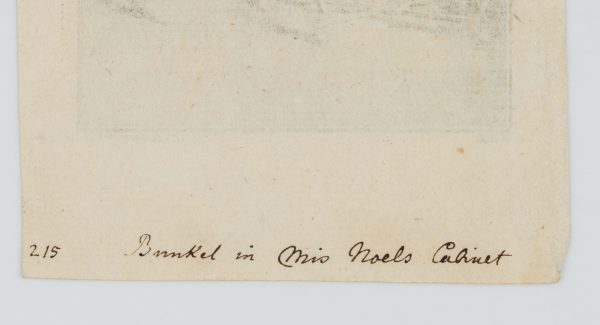 215 Bunkel in Mis Noels Cabinet